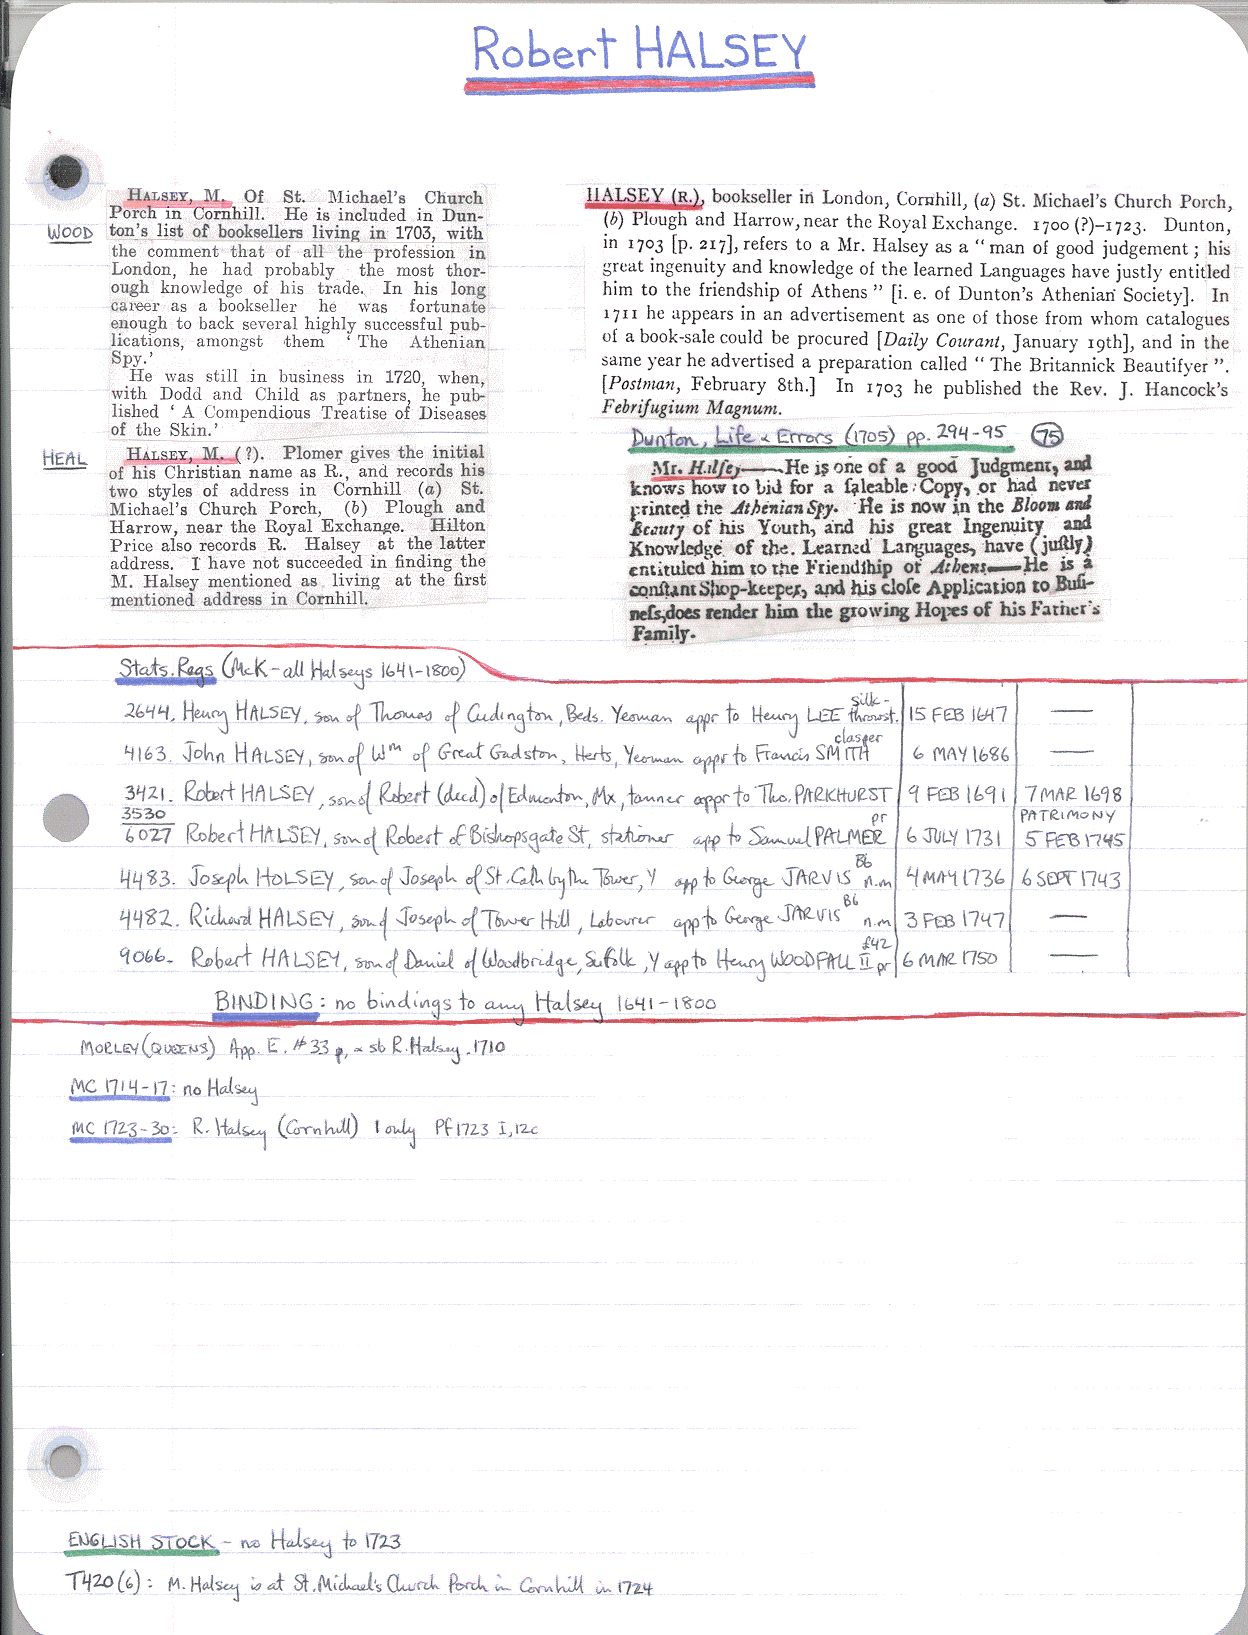 Robert HALSEY
WOOD
HALSEY, M. Of St. Michael's Church
Porch in Cornhill. He is included in Dun-
ton's list of booksellers living in 1703, with
the comment that of all the profession in
London, he had probably the most thor-
ough knowledge of his trade. In his long
career as a bookseller he was fortunate
enough to back several highly successful pub-
lications, amongst them ' The Athenian
Spy.'
He was still in business in 1720, when,
with Dodd and Child as partners, he pub-
lished ' A Compendious Treatise of Diseases
of the Skin.'
HEAL
HALSEY, M. (?). Plomer gives the initial
of his Christian name as R., and records his
two styles of address in Cornhill (a) St.
Michael's Church Porch, (b) Plough and
Harrow, near the Royal Exchange. Hilton
Price also records R. Halsey at the latter
address. I have not succeeded in finding the
M. Halsey mentioned as living at the first
mentioned address in Cornhill.
HALSEY (R.), bookseller in London, Cornhill, (a) St. Michael's Church Porch,
(b) Plough and Harrow, near the Royal Exchange. 1700 (?)–1723. Dunton,
in 1703 [p. 217], refers to a Mr. Halsey as a " man of good judgement ; his
great ingenuity and knowledge of the learned Languages have justly entitled
him to the friendship of Athens " [i. e. of Dunton's Athenian Society]. In
1711 he appears in an advertisement as one of those from whom catalogues
of a book-sale could be procured [Daily Courant, January 19th], and in the
same year he advertised a preparation called " The Britannick Beautifyer ".
[Postman, February 8th.] In 1703 he published the Rev. J. Hancock's
Febrifugium Magnum.
Dunton, Life & Errors (1705) pp. 294-95 75
Mr. Halsey—He is one of a good Judgment, and
knows how to bid for a saleable Copy, or had never
printed the Athenian Spy. He is now in the Bloom and
Beauty of his Youth, and his great Ingenuity and
Knowledge of the Learned Languages, have (justly)
entituled him to the Friendship of Athens—He is a
constant Shop-keeper, and his close Application to Busi-
ness, does render him the growing Hopes of his Father's
Family.
Stats. Regs (McK - all Halseys 1641-1800)
2644. Henry HALSEY, son of Thomas of Cudington, Beds. Yeoman appr to Henry LEE silk-throwst. 15 FEB 1647 —
4163. John HALSEY, son of Wm of Great Gadston, Herts, Yeoman appr to Francis SMITH clasper 6 MAY 1686 —
3421. Robert HALSEY, son of Robert (decd) of Edmonton, Mx, tanner appr to Tho. PARKHURST 9 FEB 1691 7 MAR 1698
3530
6027 Robert HALSEY, son of Robert of Bishopsgate St, stationer app to Samuel PALMER pr 6 JULY 1731 PATRIMONY 5 FEB 1745
4483. Joseph HOLSEY, son of Joseph of St. Cath by the Tower, Y app to George JARVIS Bb n.m 4 MAY 1736 6 SEPT 1743
4482. Richard HALSEY, son of Joseph of Tower Hill, Labourer app to George JARVIS Bb n.m 3 FEB 1747 —
9066. Robert HALSEY, son of Daniel of Woodbridge, Suffolk, Y app to Henry WOODFALL II £42 pr 6 MAR 1750 —
BINDING: no bindings to any Halsey 1641-1800
MORLEY (QUEENS) App. E. #33 p, & sb R. Halsey. 1710
MC 1714-17: no Halsey
MC 1723-30: R. Halsey (Cornhill) 1 only Pf 1723 I, 12c
ENGLISH STOCK - no Halsey to 1723
T420(6): M. Halsey is at St. Michael's Church Porch in Cornhill in 1724